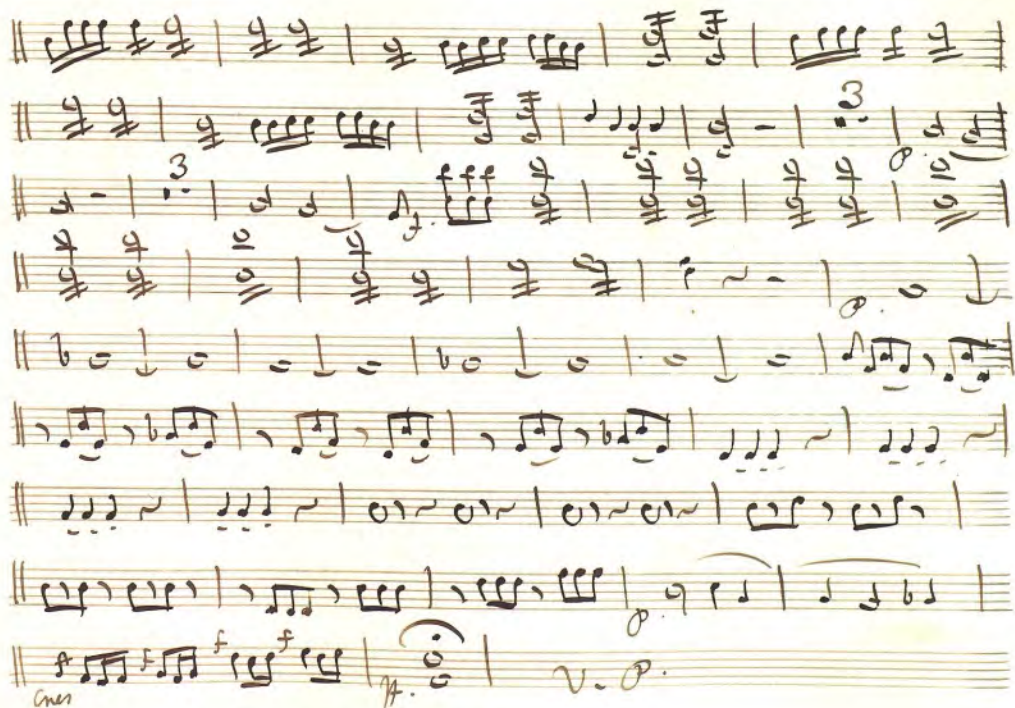 3
P.
3
f.
P.
P.
f f f f
cres ff. V. P.